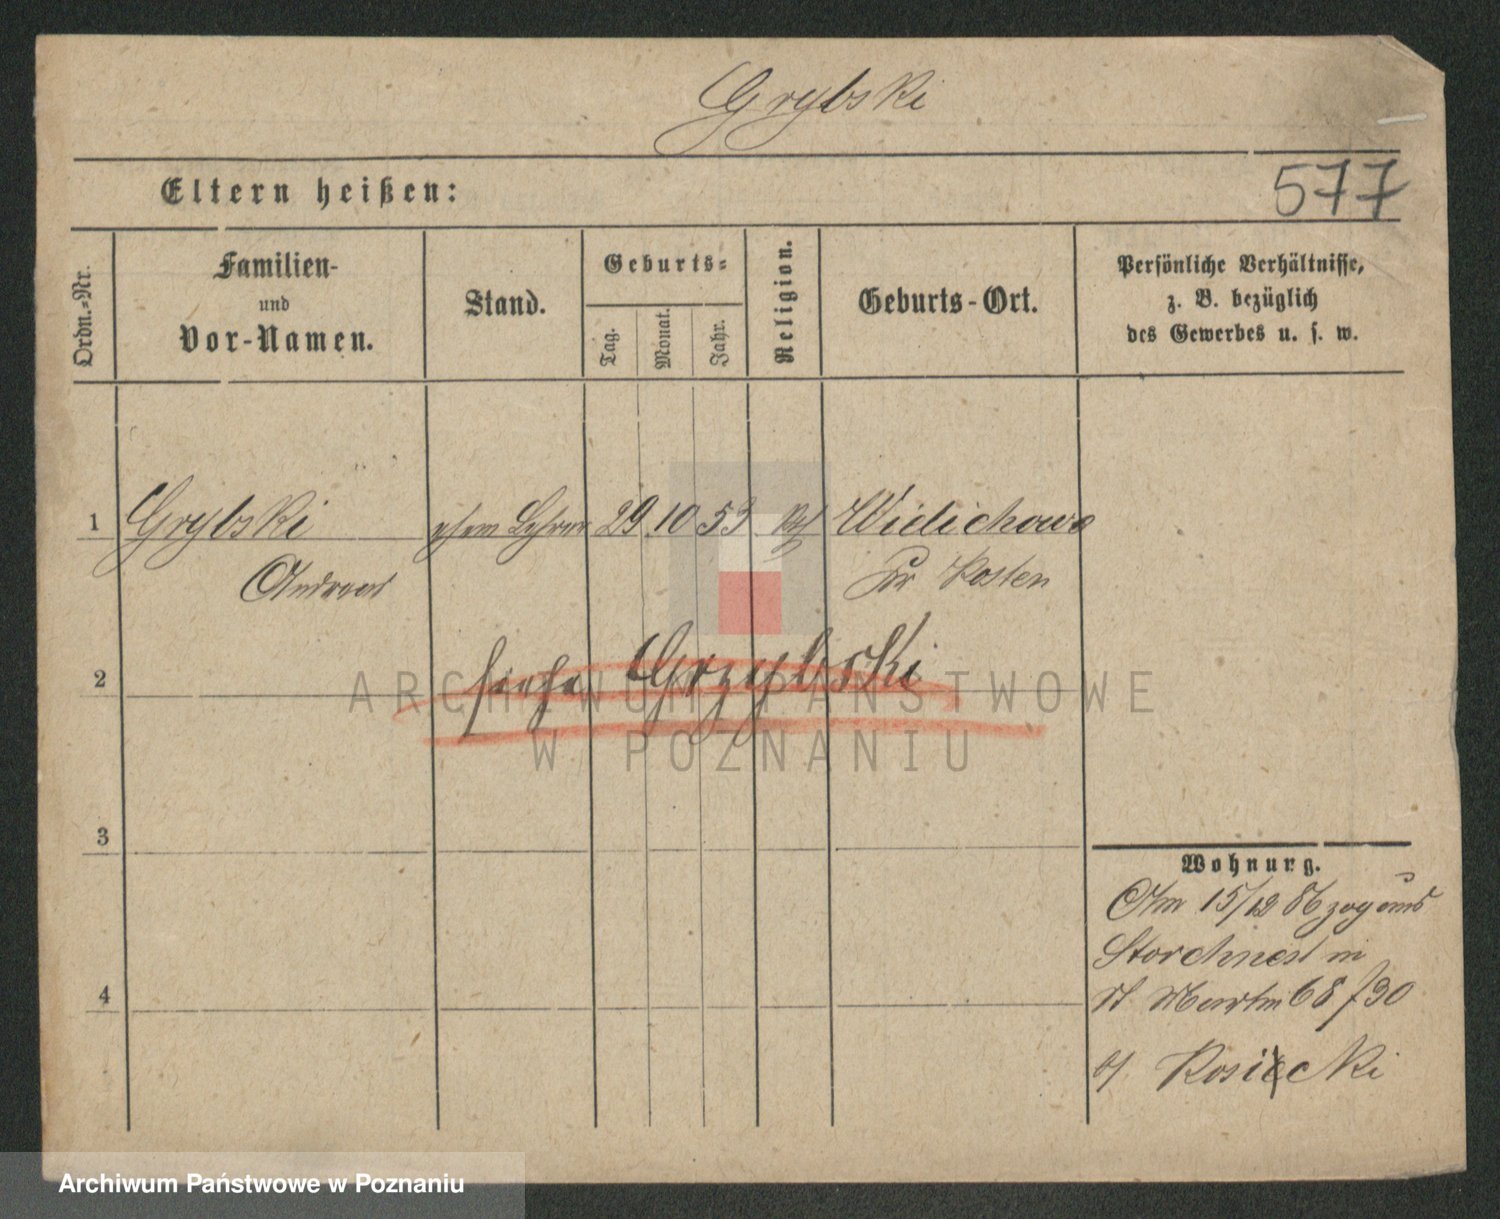 Grybski
Eltern heißen:
577
Ordn.-Nr.
Familien-
und
Vor-Namen.
Stand.
Geburts-
Tag.
Monat.
Jahr.
Religion.
Geburts-Ort.
Persönliche Verhältnisse,
z. B. bezüglich
des Gewerbes u. s. w.
1 Grybski ehem Lehrer 29 10 53 Wielichowo
Andreas Kr Kosten
2 siehe Grzybski
ARCHIWUM PAŃSTWOWE
W POZNANIU
3
Wohnung.
Am 15/12 86 zog aus
Storchnest in
4
St Martin 68 / 30
b/ Kosicki
Archiwum Państwowe w Poznaniu